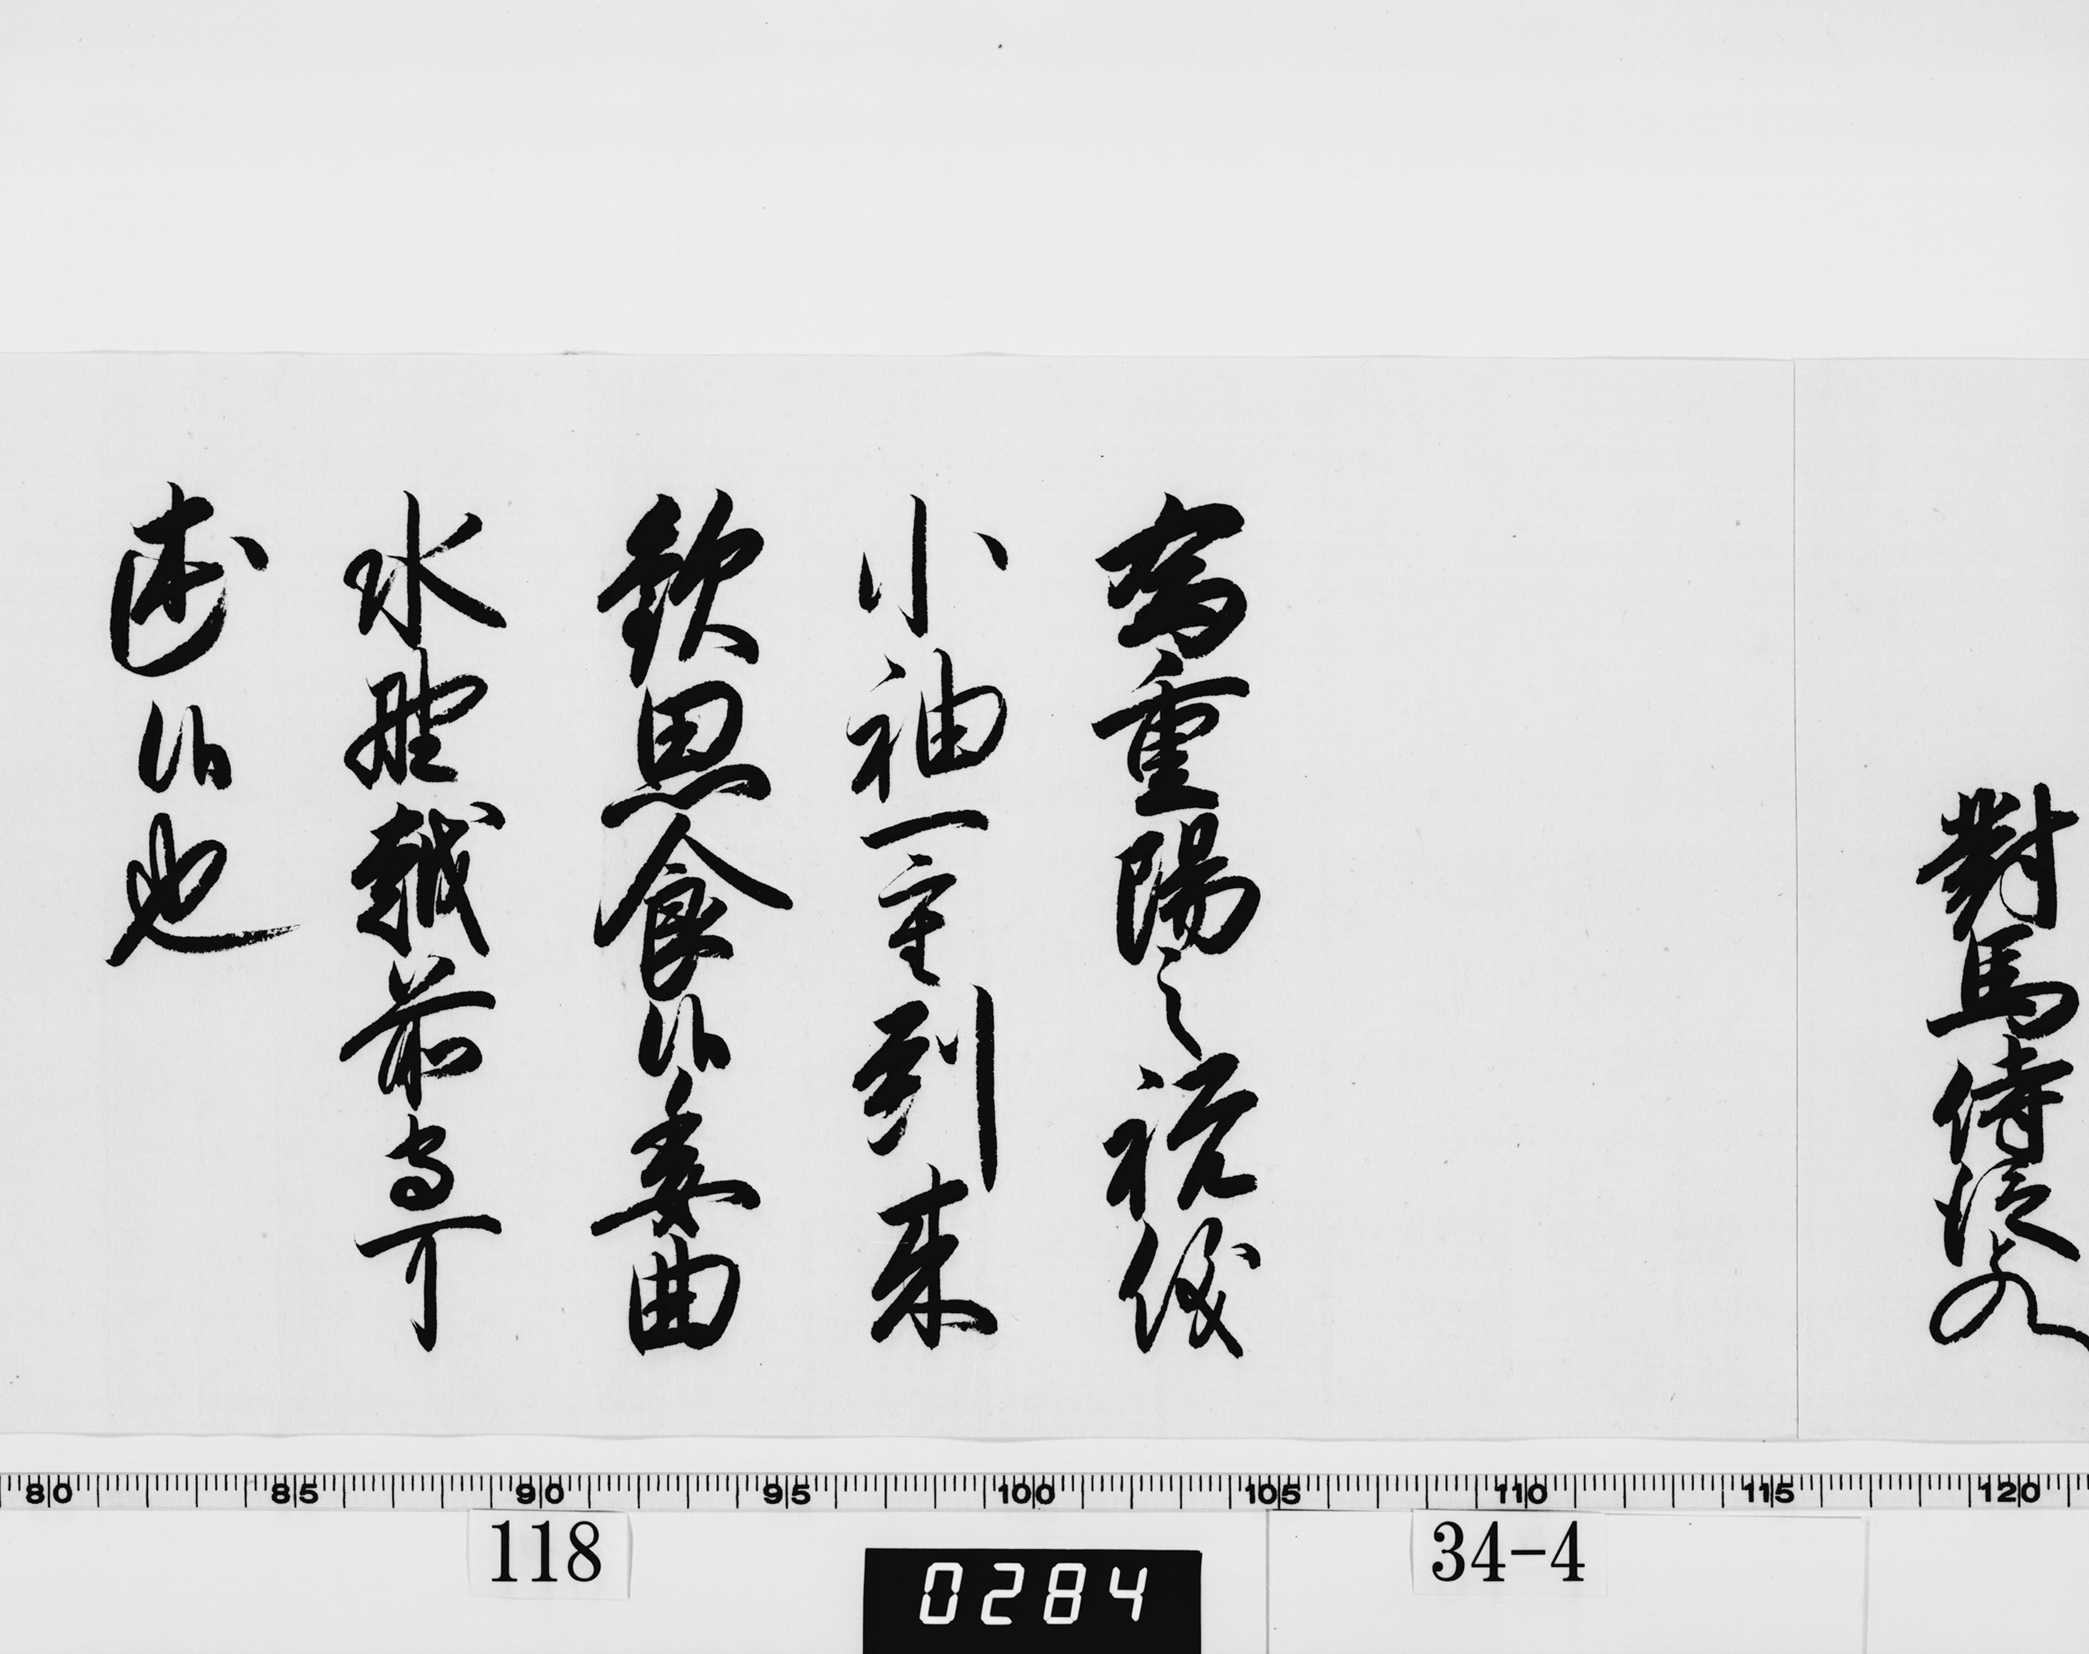 對馬侍従とのへ
為重陽之祝儀
小袖一重到来
歓思食候委曲
水野越前守可
述候也
80 85 90 95 100 105 110 115 120
118
0284
34-4